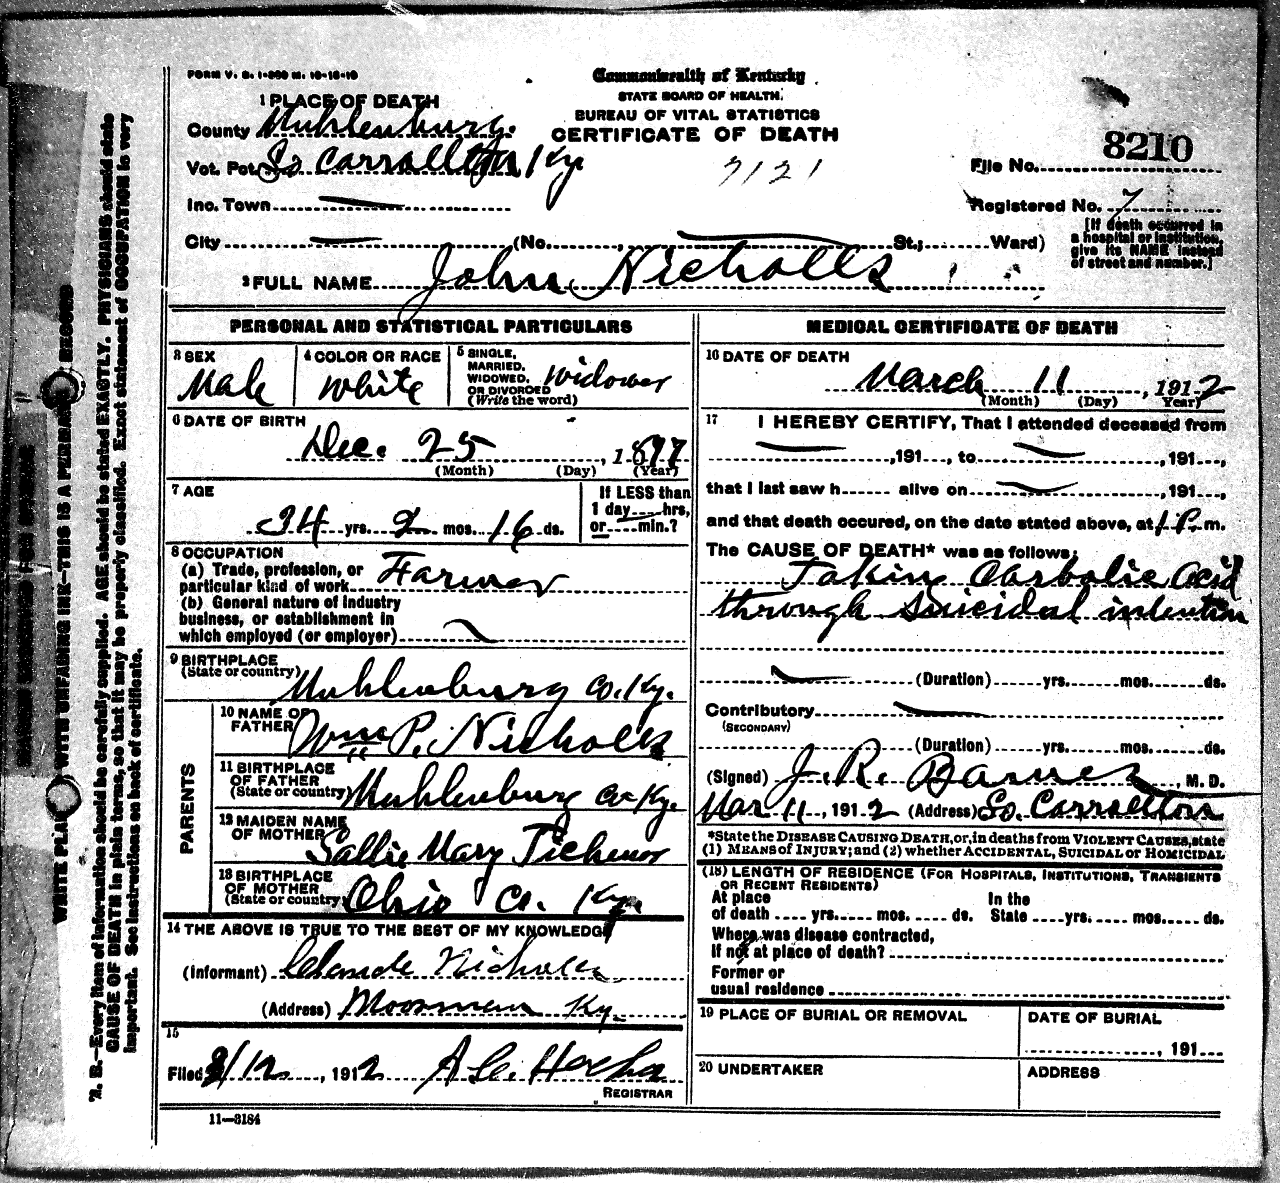 FORM V. S. 1-300 M. 10-10-10
Commonwealth of Kentucky
STATE BOARD OF HEALTH.
BUREAU OF VITAL STATISTICS
CERTIFICATE OF DEATH
7121
1 PLACE OF DEATH
County Muhlenburg.
Vot. Pct. So Carrollton, Ky.
Inc. Town
City (No. , St.; Ward)
File No. 8210
Registered No. 7
[If death occurred in
a hospital or institution,
give its NAME instead
of street and number.]
2 FULL NAME John Nicholls
PERSONAL AND STATISTICAL PARTICULARS
3 SEX
Male
4 COLOR OR RACE
White
5 SINGLE,
MARRIED.
WIDOWED.
OR DIVORCED
(Write the word)
Widower
6 DATE OF BIRTH
Dec. 25, 1877
(Month) (Day) (Year)
7 AGE
34 yrs. 2 mos. 16 ds.
If LESS than
1 day hrs,
or min.?
8 OCCUPATION
(a) Trade, profession, or
particular kind of work Farmer
(b) General nature of industry
business, or establishment in
which employed (or employer)
9 BIRTHPLACE
(State or country)
Muhlenburg Co. Ky.
PARENTS
10 NAME OF
FATHER Wm P. Nicholls
11 BIRTHPLACE
OF FATHER
(State or country) Muhlenburg Co Ky.
12 MAIDEN NAME
OF MOTHER
Sallie Mary Tichenor
13 BIRTHPLACE
OF MOTHER
(State or country) Ohio Co. Ky.
14 THE ABOVE IS TRUE TO THE BEST OF MY KNOWLEDGE
(Informant) Claude Nicholls
(Address) Moorman Ky.
15
Filed 3/12, 1912
REGISTRAR
11—3184
MEDICAL CERTIFICATE OF DEATH
16 DATE OF DEATH
March 11, 1912
(Month) (Day) Year)
17 I HEREBY CERTIFY, That I attended deceased from
,191 , to ,191 ,
that I last saw h alive on ,191 ,
and that death occured, on the date stated above, at 1 P. m.
The CAUSE OF DEATH* was as follows:
Taking Carbolic Acid
through suicidal intention
(Duration) yrs. mos. ds.
Contributory
(SECONDARY)
(Duration) yrs. mos. ds.
(Signed) J. R. Barnes, M. D.
Mar 11, 1912 (Address) So. Carrollton
*State the DISEASE CAUSING DEATH, or, in deaths from VIOLENT CAUSES, state
(1) MEANS of INJURY; and (2) whether ACCIDENTAL, SUICIDAL or HOMICIDAL
(18) LENGTH OF RESIDENCE (FOR HOSPITALS, INSTITUTIONS, TRANSIENTS
OR RECENT RESIDENTS)
At place
of death yrs. mos. ds.
In the
State yrs. mos. ds.
Where was disease contracted,
If not at place of death?
Former or
usual residence
19 PLACE OF BURIAL OR REMOVAL
DATE OF BURIAL
, 191
20 UNDERTAKER
ADDRESS
WRITE PLAINLY WITH UNFADING INK—THIS IS A PERMANENT RECORD
N. B.—Every item of information should be carefully supplied. AGE should be stated EXACTLY. PHYSICIANS should state
CAUSE OF DEATH in plain terms, so that it may be properly classified. Exact statement of OCCUPATION is very
important. See instructions on back of certificate.